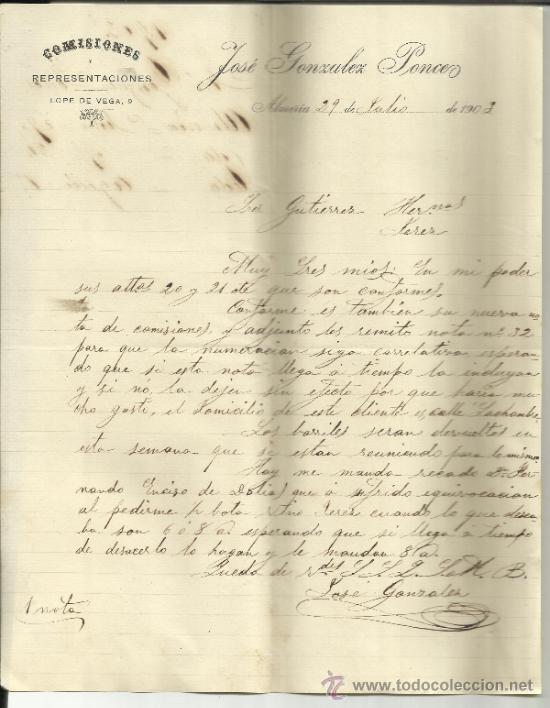 COMISIONES
Y
REPRESENTACIONES
LOPE DE VEGA, 9
José Gonzalez Ponce
Almeria 29 de Julio de 1903
Sres Gutierrez Her.nos
Jerez
Muy Sres mios: En mi poder
sus attas 20 y 21 de que son conformes.
Conforme es tambien su nueva no-
ta de comisiones, y adjunto les remito nota nº 32
para que la numeracion siga correlativa esperan-
do que si esta nota llega á tiempo la incluyan
y si no, la dejen sin efecto por que haria mu-
cho gasto, el domicilio de este cliente es calle
Los barriles seran devueltos en
esta semana que se estan reuniendo para lo mismo
Hoy me manda recado D. Fer-
nando Enciso de Dalias que á sufrido equivocacion
al pedirme ½ bota vino Jerez cuando lo que desea-
ba son 6 ó 8 a. esperando que si llega á tiempo
de desacerlo lo hagan y le mandan 8 a.
Quedo de Vdes S. S. Q. S. M. B.
José Gonzalez
1 nota
todocoleccion
www.todocoleccion.net